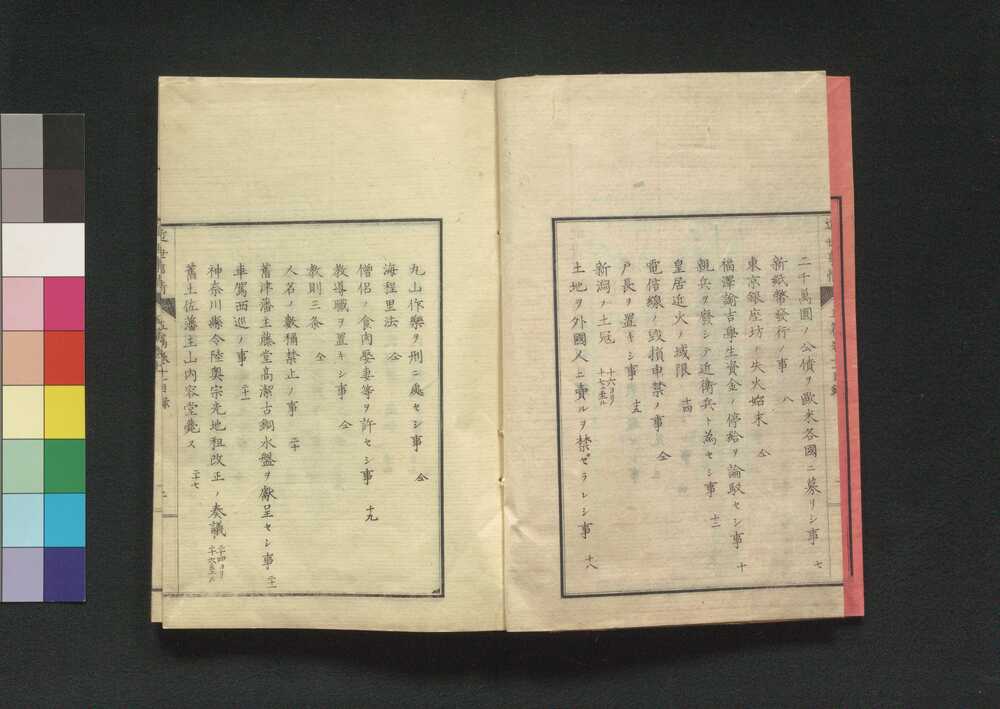 二千萬圓ノ公債ヲ歐米各國ニ募リシ事 七
新紙幣發行ノ事 八
東京銀座坊ノ失火始末 仝
福澤諭吉學生資金ノ停給ヲ論駁セシ事 十
親兵ヲ廢シテ近衛兵ト為セシ事 十二
皇居近火ノ域限 十四
電信線ノ毀損申禁ノ事 仝
戸長ヲ置キシ事 十五
新潟ノ土冦 十六ヨリ十七ニ至ル
土地ヲ外國人ニ賣ルヲ禁ゼラレシ事 十八
丸山作樂ヲ刑ニ處セシ事 仝
海程里法 仝
僧侶ノ食肉娶妻等ヲ許セシ事 十九
教導職ヲ置キシ事 仝
教則三条 仝
人名ノ數稱禁止ノ事 二十
舊津藩主藤堂高潔古銅水盤ヲ獻呈セシ事 二十一
車駕西巡ノ事 二十一
神奈川縣令陸奥宗光地租改正ノ奏議 二十四ヨリ二十六ニ至ル
舊土佐藩主山内容堂薨ス 二十七